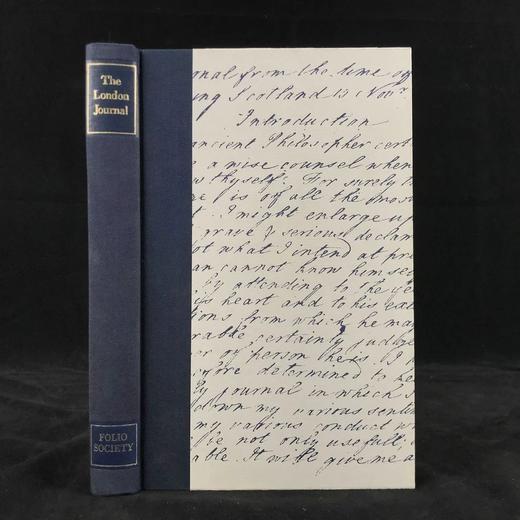 The
London
Journal
FOLIO
SOCIETY
onal from the time of
ing Scotland 15 Novr
Introduction
ancient Philosopher cert
a wise counsel when
w thyself: For surely
is of all the most
t. I might enlarge up
grave & serious declam
ot what I intend at pre
an cannot know him sel
by attending to the
is heart and to his ext
ions, from which he may
rable certainty judge
or of person he is. I
fore determined to ke
ly journal in which
down my various senti
my various conduct w
be not only usefull,
able. It will give me a